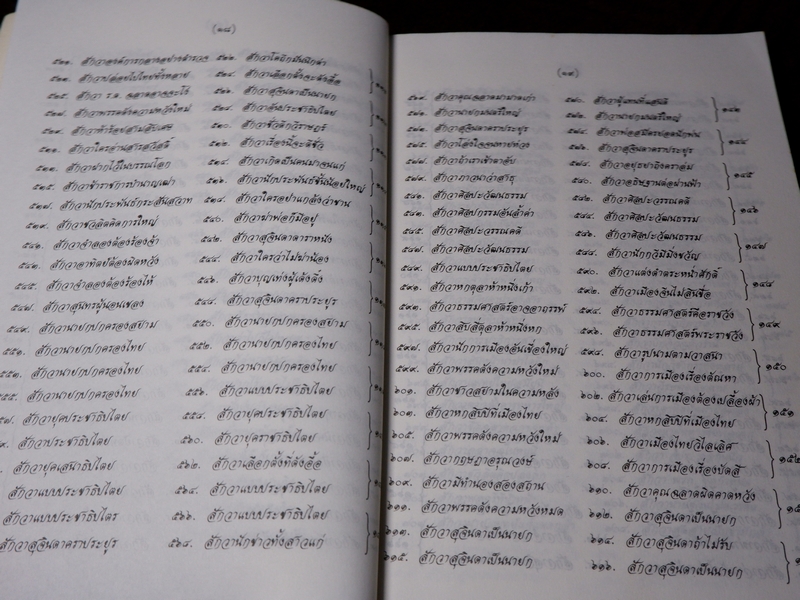 (๑๘)
สักวาองค์การกลางอย่างสำรวจ
๕๒๓. สักวาปล่อยไปไทยทั้งหลาย ๕๒๔. สักวาเลือกตั้งจะดังอื้อ
๕๒๕. สักวา ร.ต. ฉลาดอาจจะไร้ ๕๒๖. สักวาสุจินดาเป็นนายก
สักวาพรรคดังความหวังใหม่ ๕๒๘. สักวาอันประชาธิปไตย
๕๓๐. สักวาชั่วดีกวีราษฎร์
๕๓๑. สักวาใครอ่านสารสวัสดี ๕๓๒. สักวาเรื่องนี้จะดีชั่ว
๕๓๓. สักวาฝากไว้ในบรรณโลก ๕๓๔. สักวาเกิดเป็นคนมาจนแก่
๕๓๕. สักวาข้าราชการบำนาญเฒ่า ๕๓๖. สักวานักประพันธ์ชั้นน้อยใหญ่
๕๓๗. สักวานักประพันธ์กระสันสวาท ๕๓๘. สักวาใครอย่าแกล้งว่าขาน
๕๓๙. สักวาชวลิตคิดการใหญ่ ๕๔๐. สักวาฆ่าพ่อก็มีอยู่
๕๔๑. สักวาจำลองต้องร้องจ้า ๕๔๒. สักวาสุจินดาดาราหนัง
๕๔๓. สักวาอาทิตย์ต้องผิดหวัง ๕๔๔. สักวาใครว่าไม่ฆ่าน้อง
๕๔๕. สักวาจำลองต้องร้องไห้ ๕๔๖. สักวาบุญเท่งผู้เต้งติ้ง
๕๔๗. สักวาสุนทรผู้นอนเชลง ๕๔๘. สักวาสุจินดาคราประยูร
๕๔๙. สักวานายกปกครองสยาม ๕๕๐. สักวานายกปกครองสยาม
๕๕๑. สักวานายกปกครองไทย ๕๕๒. สักวานายกปกครองไทย
๕๕๓. สักวานายกปกครองไทย ๕๕๔. สักวานายกปกครองไทย
๕๕๕. สักวานายกปกครองไทย ๕๕๖. สักวาแบบประชาธิปไตย
๗. สักวายุคประชาธิปไตย ๕๕๘. สักวายุคประชาธิปไตย
๙. สักวาประชาธิปไตย ๕๖๐. สักวายุคราชาธิปไตย
สักวายุคเสนาธิปไตย ๕๖๒. สักวาเลือกตั้งที่ดังอื้อ
สักวาแบบประชาธิปไตย ๕๖๔. สักวาแบบประชาธิปไตย
สักวาแบบประชาธิปไตร ๕๖๖. สักวาแบบประชาธิปไตย
สักวาสุจินดาคราประยูร ๕๖๘. สักวานักข่าวทั้งสาวแก่
(๑๙)
๕๖๙. สักวาคุณฉลาดมามาดเก่า ๕๗๐. สักวาผู้แทนที่แสนดี ๑๔๓
๕๗๑. สักวานายกมนตรีใหญ่ ๕๗๒. สักวานายกมนตรีใหญ่
๕๗๓. สักวาสุจินดาคราประยูร ๕๗๔. สักวาพ่อสมัครยอดนักพ่น ๑๔๔
๕๗๕. สักวาโล่งใจจนหายห่วง ๕๗๖. สักวาสุจินดาคราประยูร
๕๗๗. สักวาถ้าเราเข้าตาอับ ๕๗๘. สักวาอยุธยายังคราล่ม ๑๔๕
๕๗๙. สักวาภาวนาว่าสาธุ ๕๘๐. สักวาอธิษฐานต่อม่านฟ้า
๕๘๑. สักวาศิลปะวัฒนธรรม ๕๘๒. สักวาศิลปะวรรณคดี ๑๔๖
๕๘๓. สักวาศิลปกรรมอันล้ำค่า ๕๘๔. สักวาศิลปะวัฒนธรรม
๕๘๕. สักวาศิลปะวรรณคดี ๕๘๖. สักวาศิลปะวัฒนธรรม ๑๔๗
๕๘๗. สักวาศิลปะวัฒนธรรม ๕๘๘. สักวานักกวีมิ่งขวัญ
๕๘๙. สักวาแบบประชาธิปไตย ๕๙๐. สักวาแต่งตำตระหน่ำศักดิ์ ๑๔๘
๕๙๑. สักวาหกตุลาห้าหนึ่งเก้า ๕๙๒. สักวาเมืองจีนไม่สิ้นชื่อ
๕๙๓. สักวาธรรมศาสตร์อาจอาถรรพ์ ๕๙๔. สักวาธรรมศาสตร์คือราชวัง ๑๔๙
๕๙๕. สักวาสิบสี่ตุลาห้าหนึ่งหก ๕๙๖. สักวาธรรมศาสตร์พระราชวัง
๕๙๗. สักวานักการเมืองอันเขื่องใหญ่ ๕๙๘. สักวารูปนามตามวาสนา ๑๕๐
๕๙๙. สักวาพรรคดังความหวังใหม่ ๖๐๐. สักวาการเมืองเรื่องตัณหา
๖๐๑. สักวาชาวสยามในความหลัง ๖๐๒. สักวาเล่นการเมืองต้องเปลื้องผ้า ๑๕๑
๖๐๓. สักวาหกสิบปีที่เมืองไทย ๖๐๔. สักวาหกสิบปีที่เมืองไทย
๖๐๕. สักวาพรรคดังความหวังใหม่ ๖๐๖. สักวาเมืองไทยวิไลเลิศ ๑๕๒
๖๐๗. สักวากฤษฎาอรุณวงษ์ ๖๐๘. สักวาการเมืองเรื่องบัดสี
๖๐๙. สักวามีทำนองสองสถาน ๖๑๐. สักวาคุณฉลาดผิดคาดหวัง
๖๑๑. สักวาพรรคดังความหวังหมด ๖๑๒. สักวาสุจินดาเป็นนายก
๖๑๓. สักวาสุจินดาเป็นนายก ๖๑๔. สักวาสุจินดาถ้าไม่รับ
๖๑๕. สักวาสุจินดาเป็นนายก ๖๑๖. สักวาสุจินดาเป็นนายก